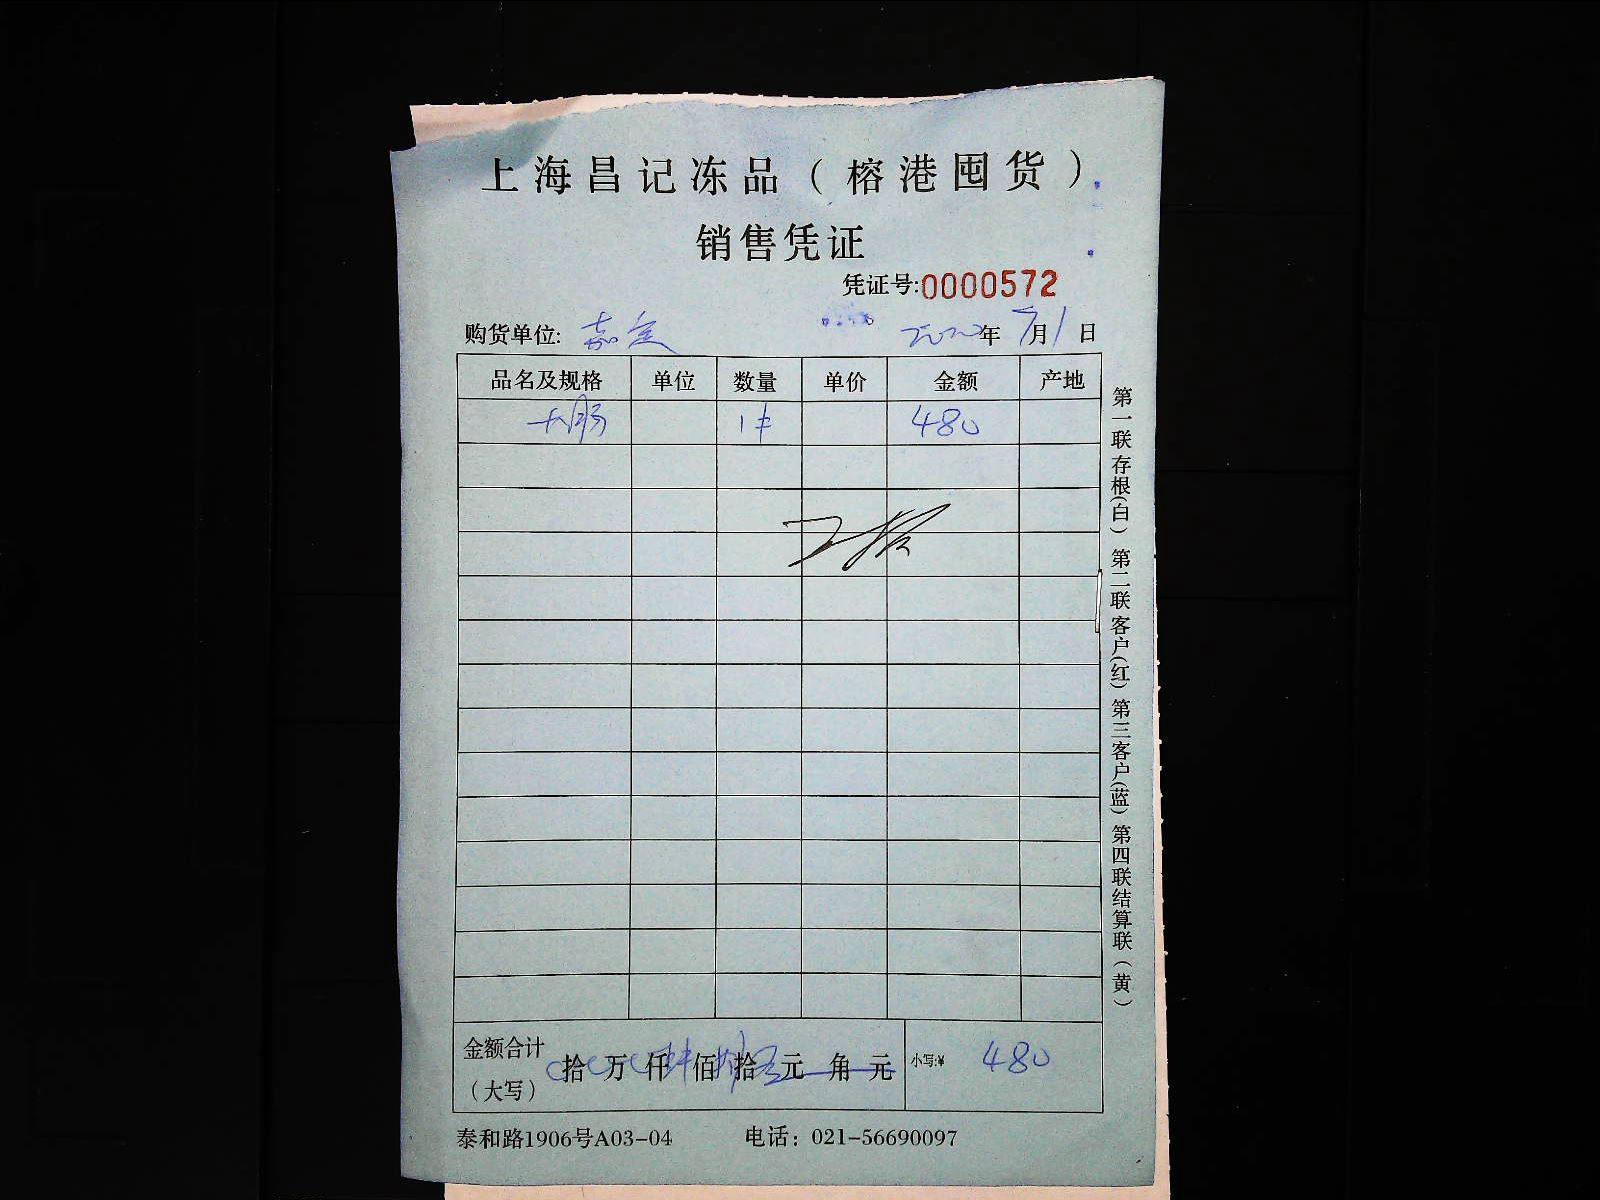 上海昌记冻品（榕港囤货）
销售凭证
凭证号:0000572
购货单位: 嘉定 2022年7月1日
品名及规格 单位 数量 单价 金额 产地
大肠 1件 480
金额合计（大写） 拾 万 仟 佰 拾 元 角 元 小写:¥ 480
泰和路1906号A03-04 电话：021-56690097
第一联存根(白) 第二联客户(红) 第三客户(蓝) 第四联结算联(黄)